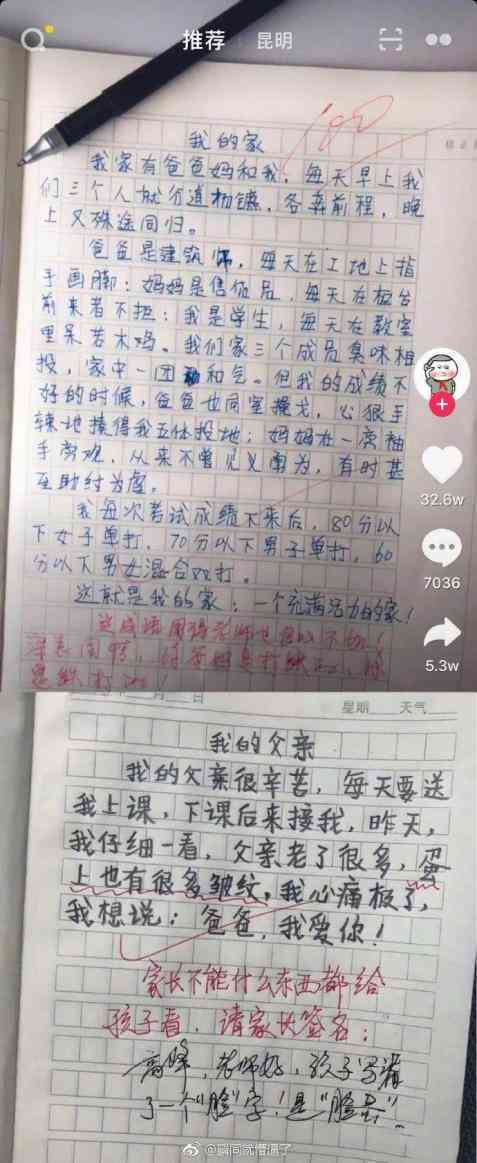 推荐 昆明
100
我的家
我家有爸爸妈和我，每天早上我
们三个人就分道扬镳，各奔前程，晚
上又殊途同归。
爸爸是建筑师，每天在工地上指
手画脚；妈妈是售货员，每天在柜台
前来者不拒；我是学生，每天在教室
里呆若木鸡。我们家三个成员臭味相
投，家中一团和气。但我的成绩不
好的时候，爸爸也同室操戈，心狠手
辣地揍得我五体投地；妈妈在一旁袖
手旁观，从来不曾见义勇为，有时甚
至助纣为虐。
我每次考试成绩下来后，80分以
下女子单打，70分以下男子单打，60
分以下男女混合双打。
这就是我的家；一个充满活力的家！
这成语用得老师也
深表同情，
32.6w
7036
5.3w
月 日 星期 天气
我的父亲
我的父亲很辛苦，每天要送
我上课，下课后来接我，昨天，
我仔细一看，父亲老了很多，蛋
上也有很多皱纹，我心痛极了，
我想说：爸爸，我爱你！
家长不能什么东西都给
孩子看，请家长签名：
高峰，老师好，孩子写错
了一个“脸”字！是“脸蛋”.
@瞬间就懵逼了